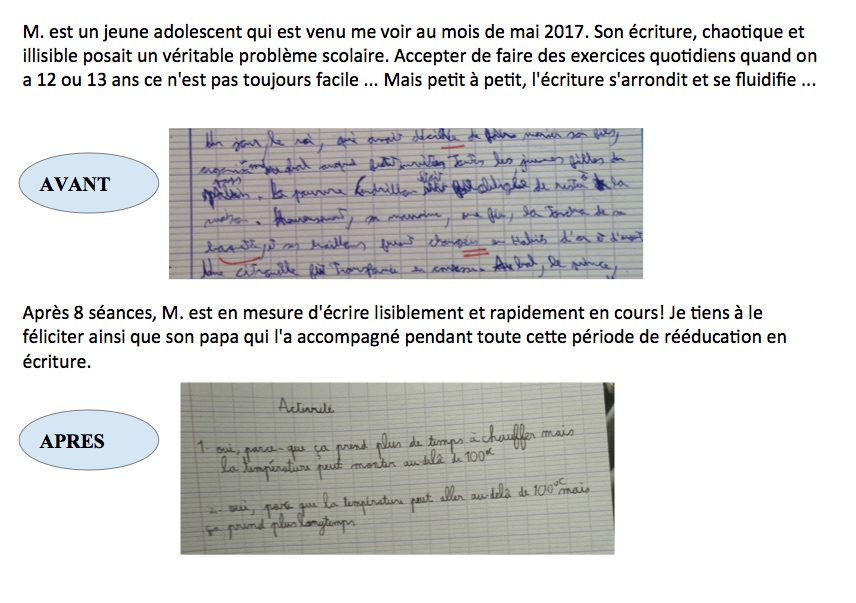 M. est un jeune adolescent qui est venu me voir au mois de mai 2017. Son écriture, chaotique et
illisible posait un véritable problème scolaire. Accepter de faire des exercices quotidiens quand on
a 12 ou 13 ans ce n'est pas toujours facile ... Mais petit à petit, l'écriture s'arrondit et se fluidifie ...
AVANT
Un jour, le roi, qui avait décidée de faire marier son fils,
les jeunes filles du
La pauvre Cendrillon de rester à la
maison. Heureusement, sa marraine, une fée, la toucha de sa
baguette, et ses haillons furent changées en Habits d'or et d'argent
Une citrouille fût Transformée en carrosse. Au bal, le prince,
Après 8 séances, M. est en mesure d'écrire lisiblement et rapidement en cours! Je tiens à le
féliciter ainsi que son papa qui l'a accompagné pendant toute cette période de rééducation en
écriture.
APRES
Activité
1- oui, parce-que ça prend plus de temps à chauffer mais
la température peut monter au-delà de 100°C
2- oui, parce que la température peut aller au-delà de 100°C mais
ça prend plus longtemps